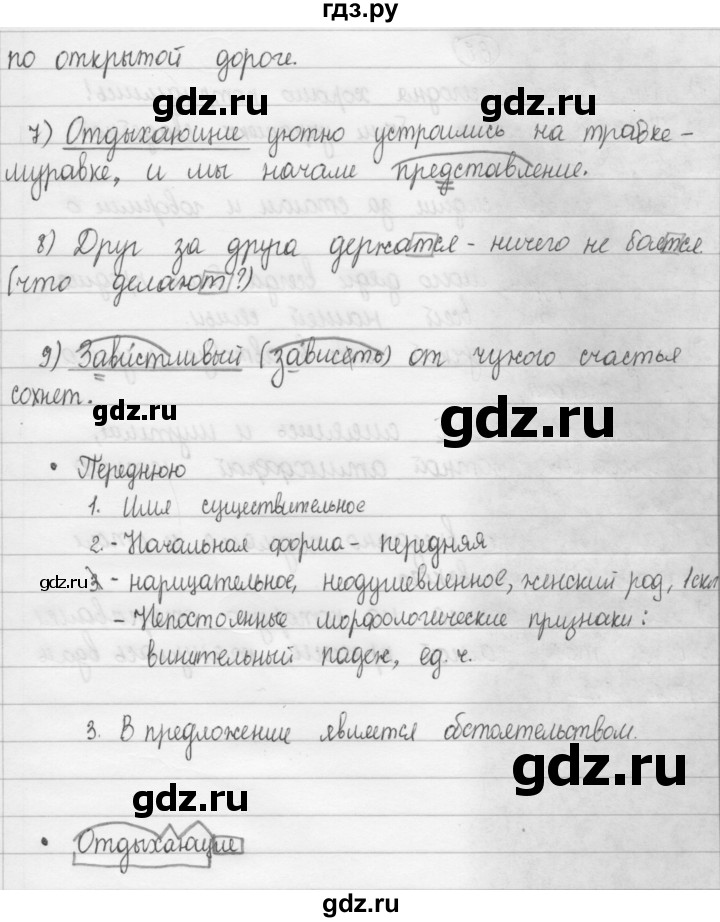 гдз.ру
по открытой дороге.
gdz.ru gdz.ru
7) Отдыхающие уютно устроились на травке-
муравке, и мы начали представление.
gdz.ru gdz.ru
8) Друг за друга держатся - ничего не боятся.
(что делают?)
9) Завистливый (зависеть) от чужого счастья
сохнет.
gdz.ru gdz.ru
• Переднюю
1. Имя существительное
2. - Начальная форма - передняя
gdz.ru - нарицательное, неодушевленное, женский род, 1скл
- Непостоянные морфологические признаки:
винительный падеж, ед. ч.
3. В предложение является обстоятельством.
gdz.ru gdz.ru
• Отдыхающие
gdz.ru